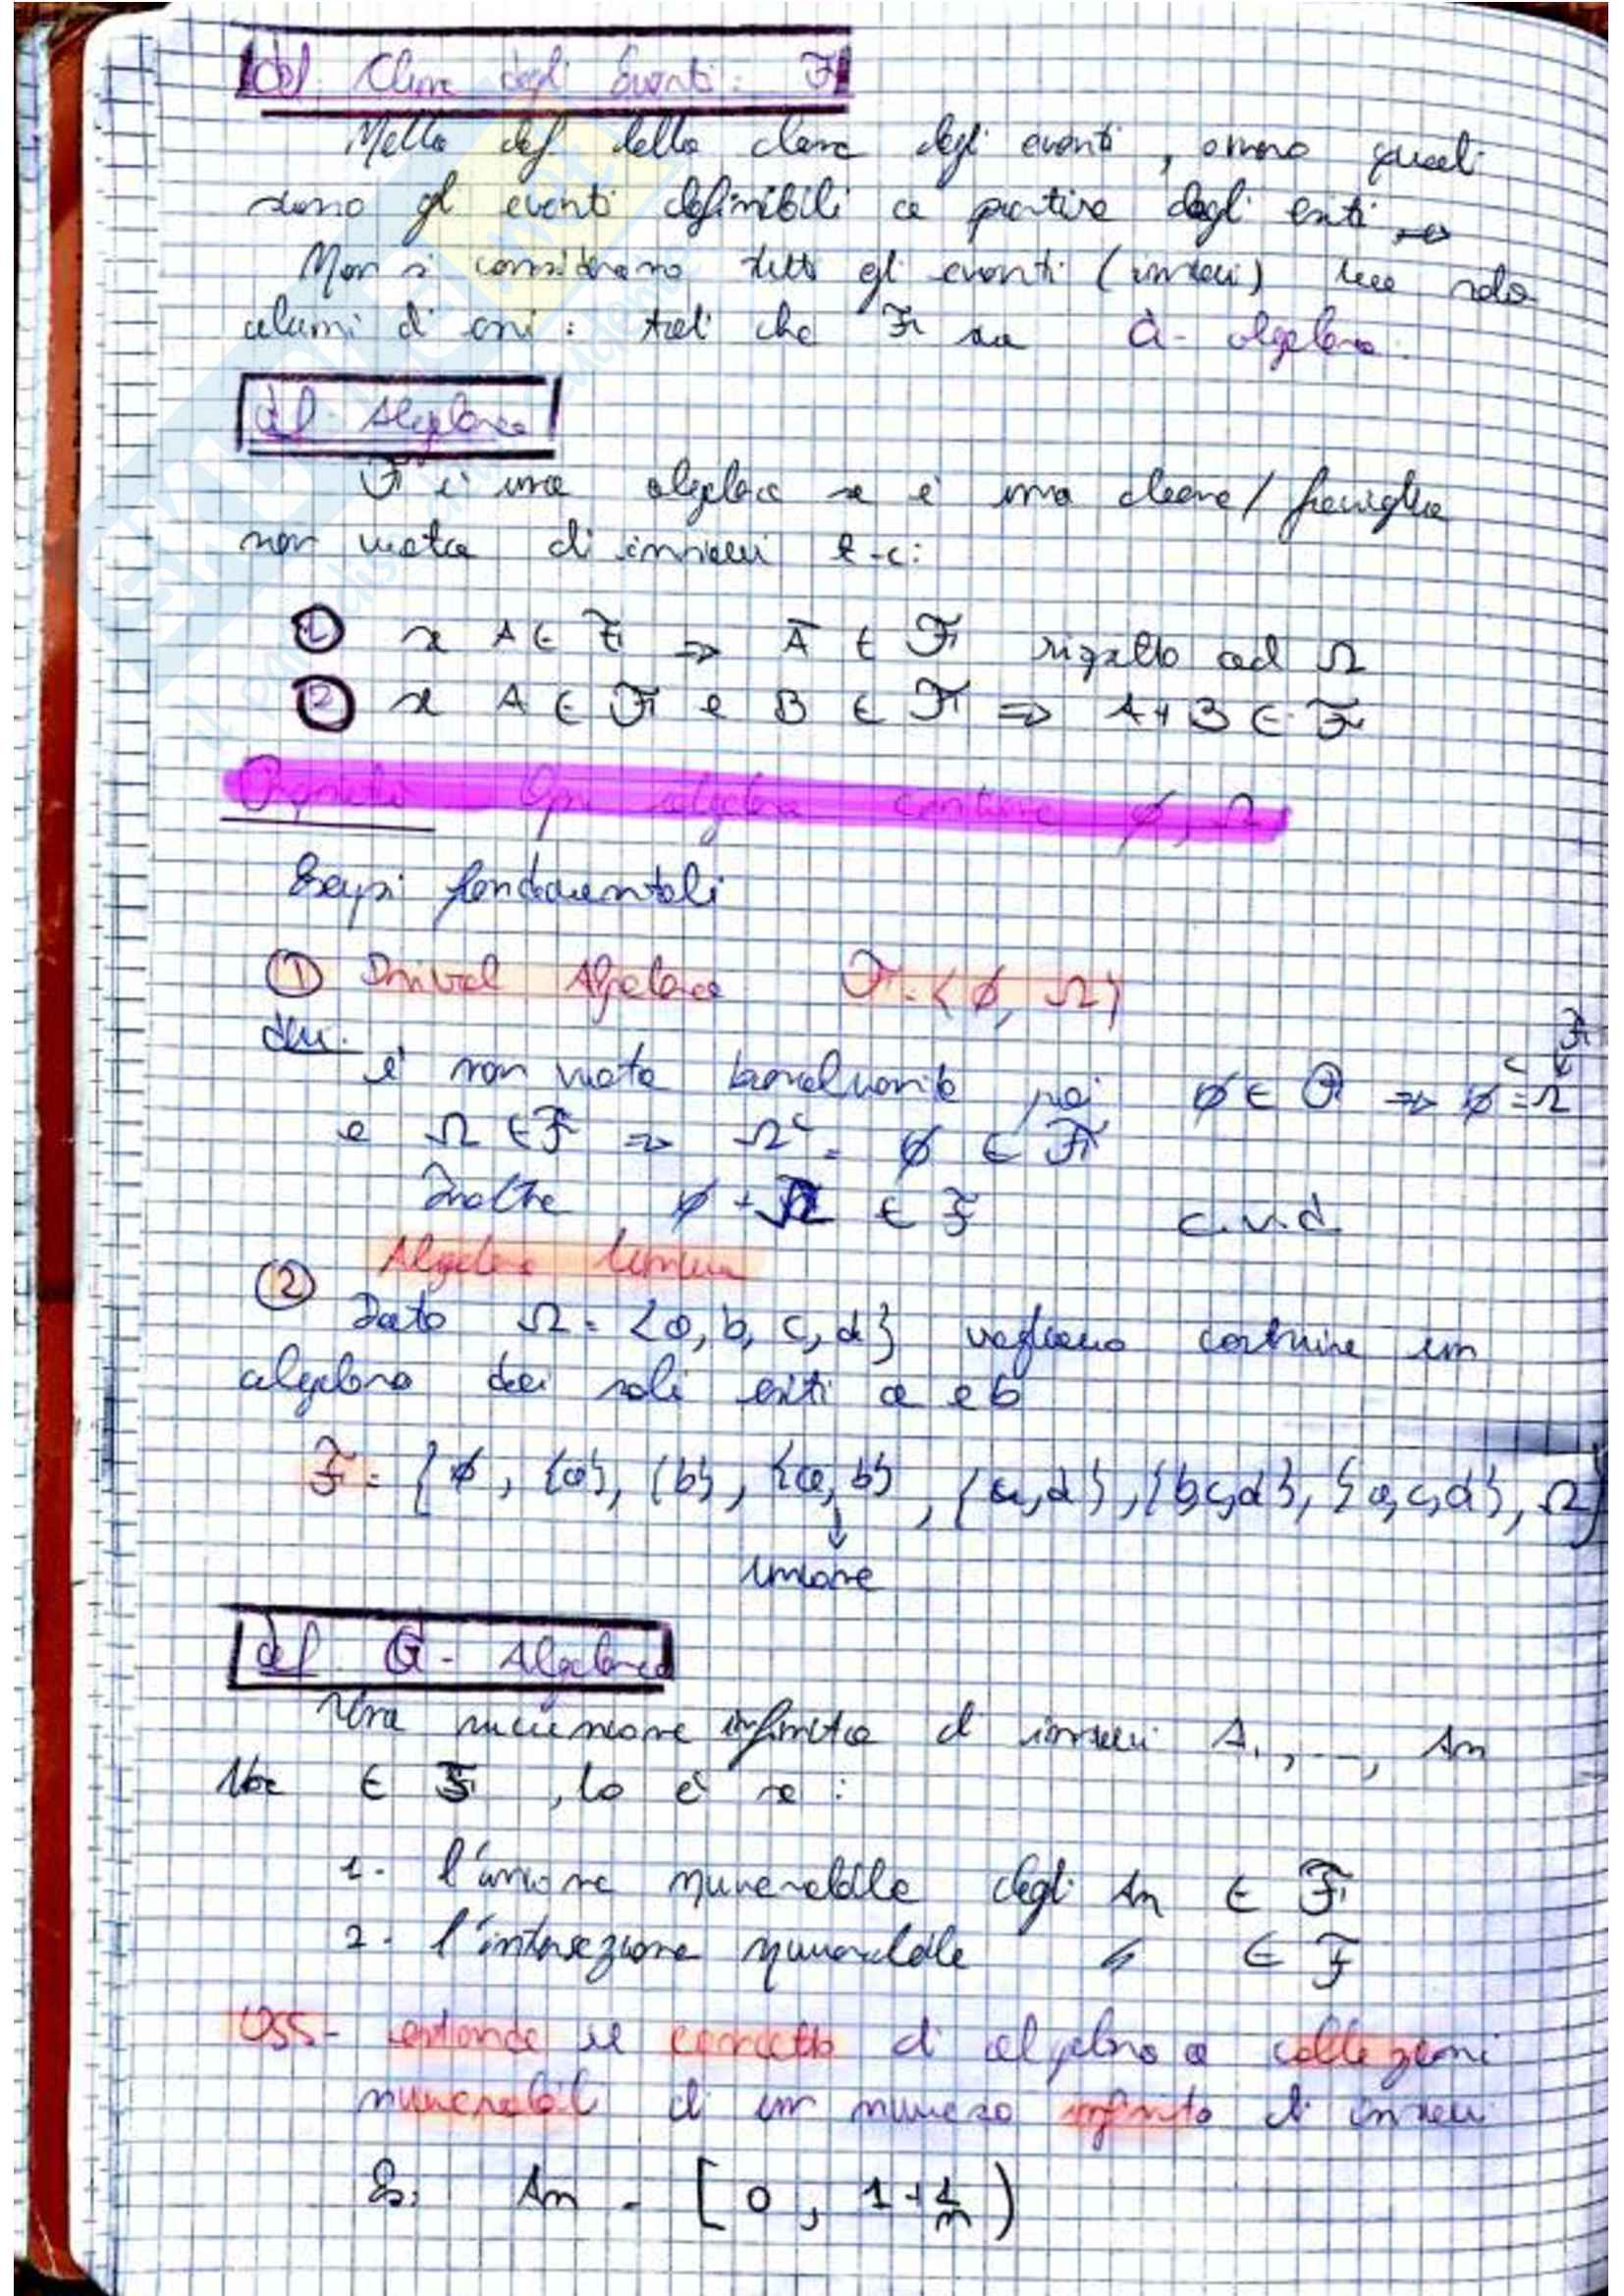 def Classe degli Eventi: F
Nella def della classe degli eventi, ovvero quali
sono gli eventi definibili a partire dagli esiti →
Non si considerano tutti gli eventi (insiemi) ma solo
alcuni di essi: tali che F sia σ-algebra.
def Algebra
F è una algebra se è una classe/famiglia
non vuota di insiemi t.c:
① se A ∈ F ⇒ Ā ∈ F rispetto ad Ω
② se A ∈ F e B ∈ F ⇒ A+B ∈ F
Proprietà - Ogni algebra contiene ∅, Ω
Esempi fondamentali
① Trivial Algebra F = {∅, Ω}
dim.
è non vuota banalmente poi ∅ ∈ F ⇒ ∅ᶜ = Ω ∈ F
e Ω ∈ F ⇒ Ωᶜ = ∅ ∈ F
Inoltre ∅ + Ω ∈ F c.v.d.
Algebra
② Dato Ω = {a, b, c, d} vogliamo costruire un
algebra dai soli esiti a e b
F = {∅, {a}, {b}, {a, b}, {c,d}, {b,c,d}, {a,c,d}, Ω}
↓
unione
def σ-Algebra
Una successione infinita di insiemi A₁, ..., An
∈ F, lo è se:
1. l'unione numerabile degli An ∈ F
2. l'intersezione numerabile " ∈ F
OSS- estende il concetto di algebra a collezioni
numerabili di un numero infinito di insiemi
Es. An = [0, 1+1/n)